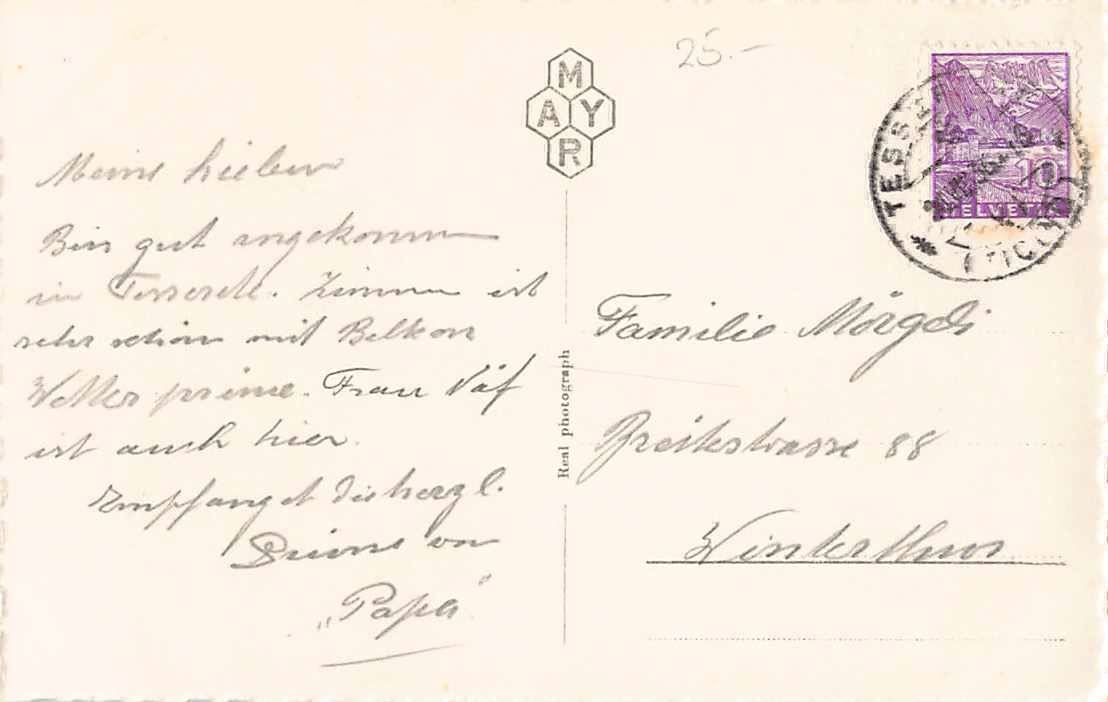 25.-
M
A Y
R
Meine Lieben
Bin gut angekommen
in Tesserete. Zimmer ist
sehr schön mit Balkon
Wetter prima. Frau Näf
ist auch hier.
Empfanget die herzl.
Grüsse von
„Papa"
Real photograph
TESSERETE
HELVETIA
10
Familie Mörgeli
Breitestrasse 88
Winterthur